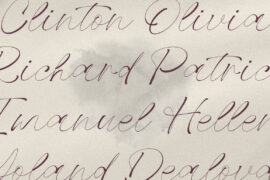 Clinton Olivia
Richard Patric
Imanuel Heller
Joland Dealova